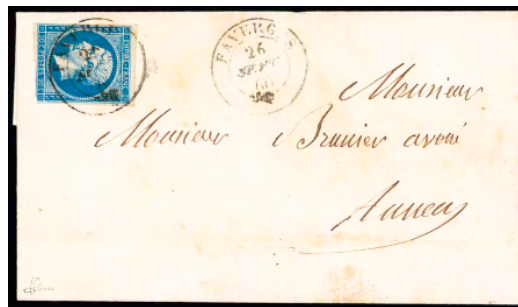 FAVERGES
26
SEPT
60
Monsieur
Monsieur Brunier avoué
Annecy